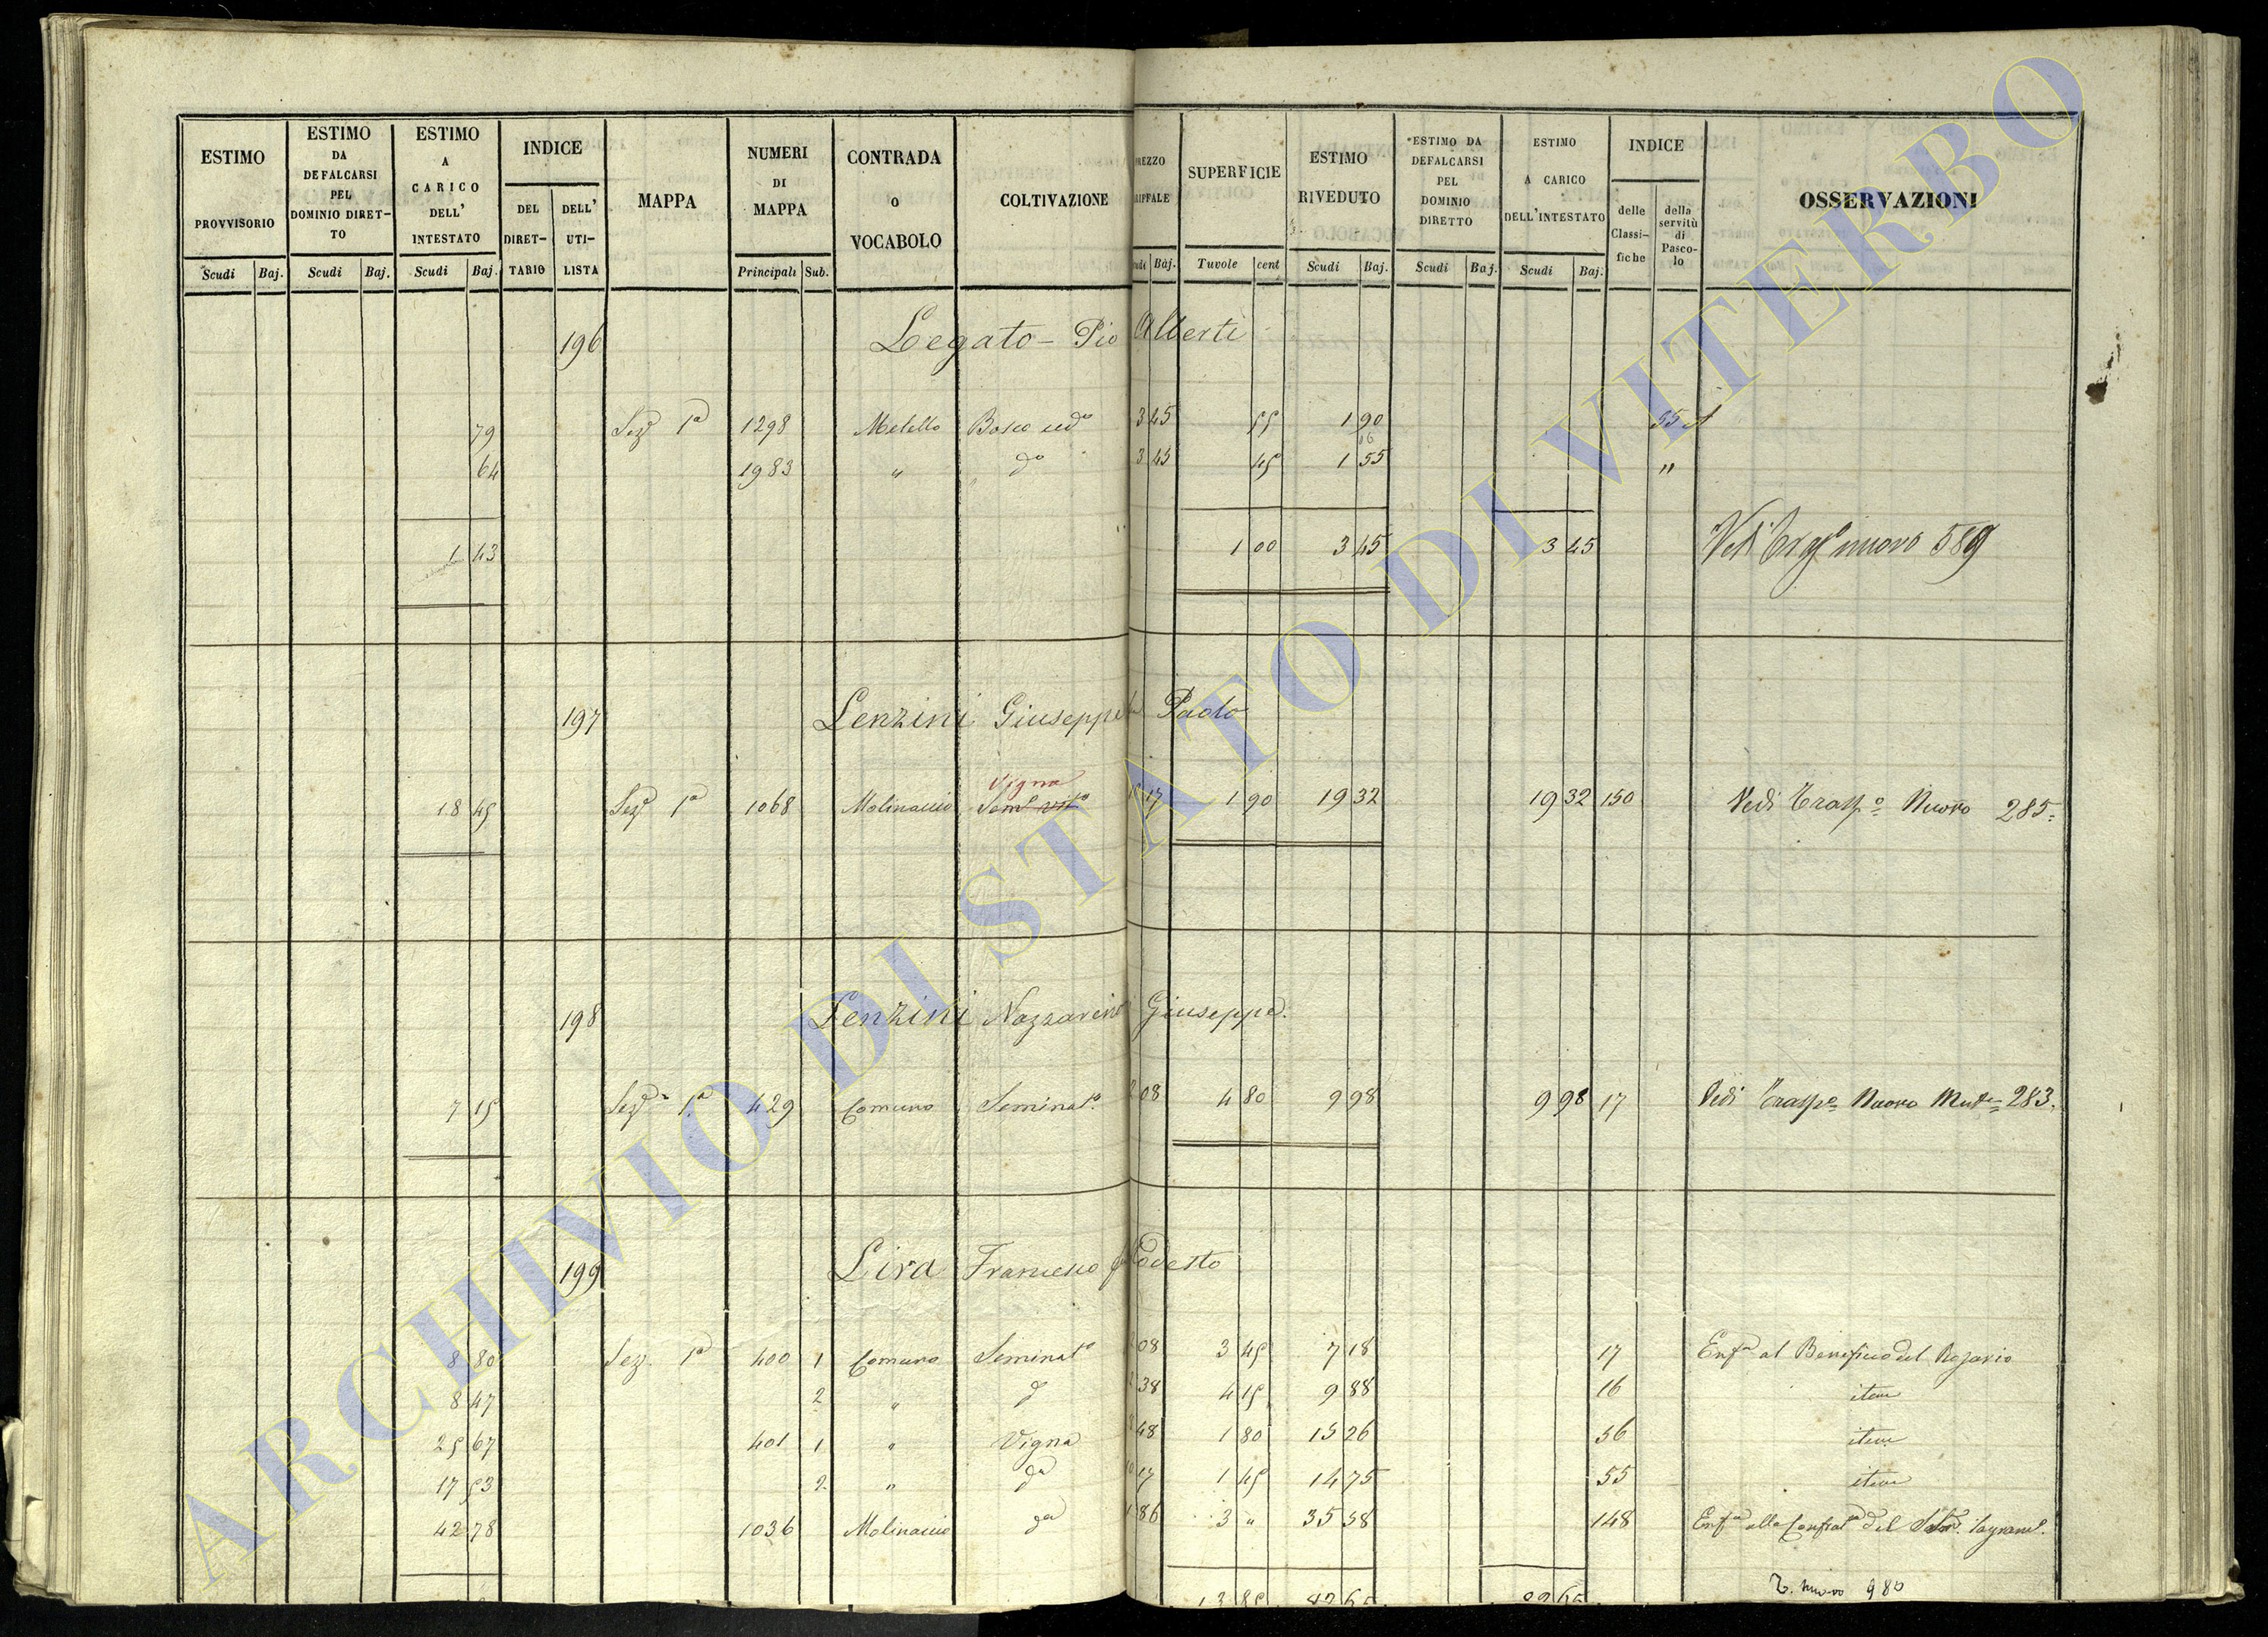 ESTIMO PROVVISORIO
ESTIMO DA DEFALCARSI PEL DOMINIO DIRET-TO
ESTIMO A CARICO DELL' INTESTATO
INDICE
DEL DIRET-TARIO
DELL' UTI-LISTA
MAPPA
NUMERI DI MAPPA
CONTRADA O VOCABOLO
COLTIVAZIONE
SUPERFICIE
ESTIMO RIVEDUTO
ESTIMO DA DEFALCARSI PEL DOMINIO DIRETTO
ESTIMO A CARICO DELL'INTESTATO
INDICE
delle Classi-fiche
della servitù di Pasco-lo
OSSERVAZIONI
Scudi Baj. Scudi Baj. Scudi Baj. Principali Sub. Baj. Tavole cent Scudi Baj. Scudi Baj. Scudi Baj.
196 Legato - Pio Alberti
79 Sez 1a 1298 Melello Bosco 3 45 55 1 90 35
64 1983 " do 3 45 45 1 55 "
1 43 1 00 3 45 3 45 nuovo 589
197 Lenzini Giuseppe Paolo
Vigna
18 45 Sez 1a 1068 Molinaccio Semo vito 17 1 90 19 32 19 32 150 Vedi Traspo Nuovo 285
198 Lenzini Nazzareno Giuseppe
7 15 Seze 1a 429 Comuno Seminato 08 4 80 9 98 9 98 17 Vedi Traspo Nuovo 283
199 Lira Francesco Modesto
8 80 Sez. 1a 400 1 Comuno Seminato 08 3 45 7 18 17 Enfa al Beneficio del Rosario
8 47 2 " d 38 4 15 9 88 16 item
25 67 401 1 " Vigna 48 1 80 15 26 56 item
17 53 2 " da 17 1 45 14 75 55 item
42 78 1036 Molinaccio da 86 3 " 35 58 148 Enfa alla Confrata del
13 85 82 65 82 65 T. nuovo 980
ARCHIVIO DI STATO DI VITERBO